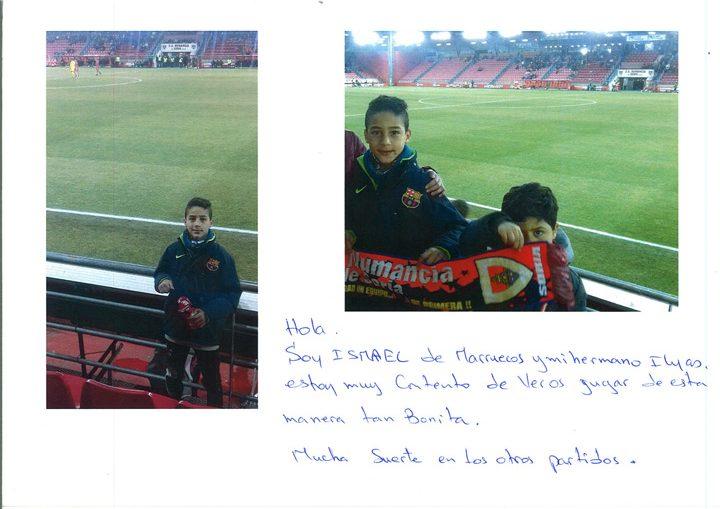 Numancia
de Soria
SORIA
Hola.
Soy ISMAEL de Marruecos y mi hermano Ilyas.
estoy muy Contento de Veros jugar de esta
manera tan Bonita.
Mucha Suerte en los otros partidos.